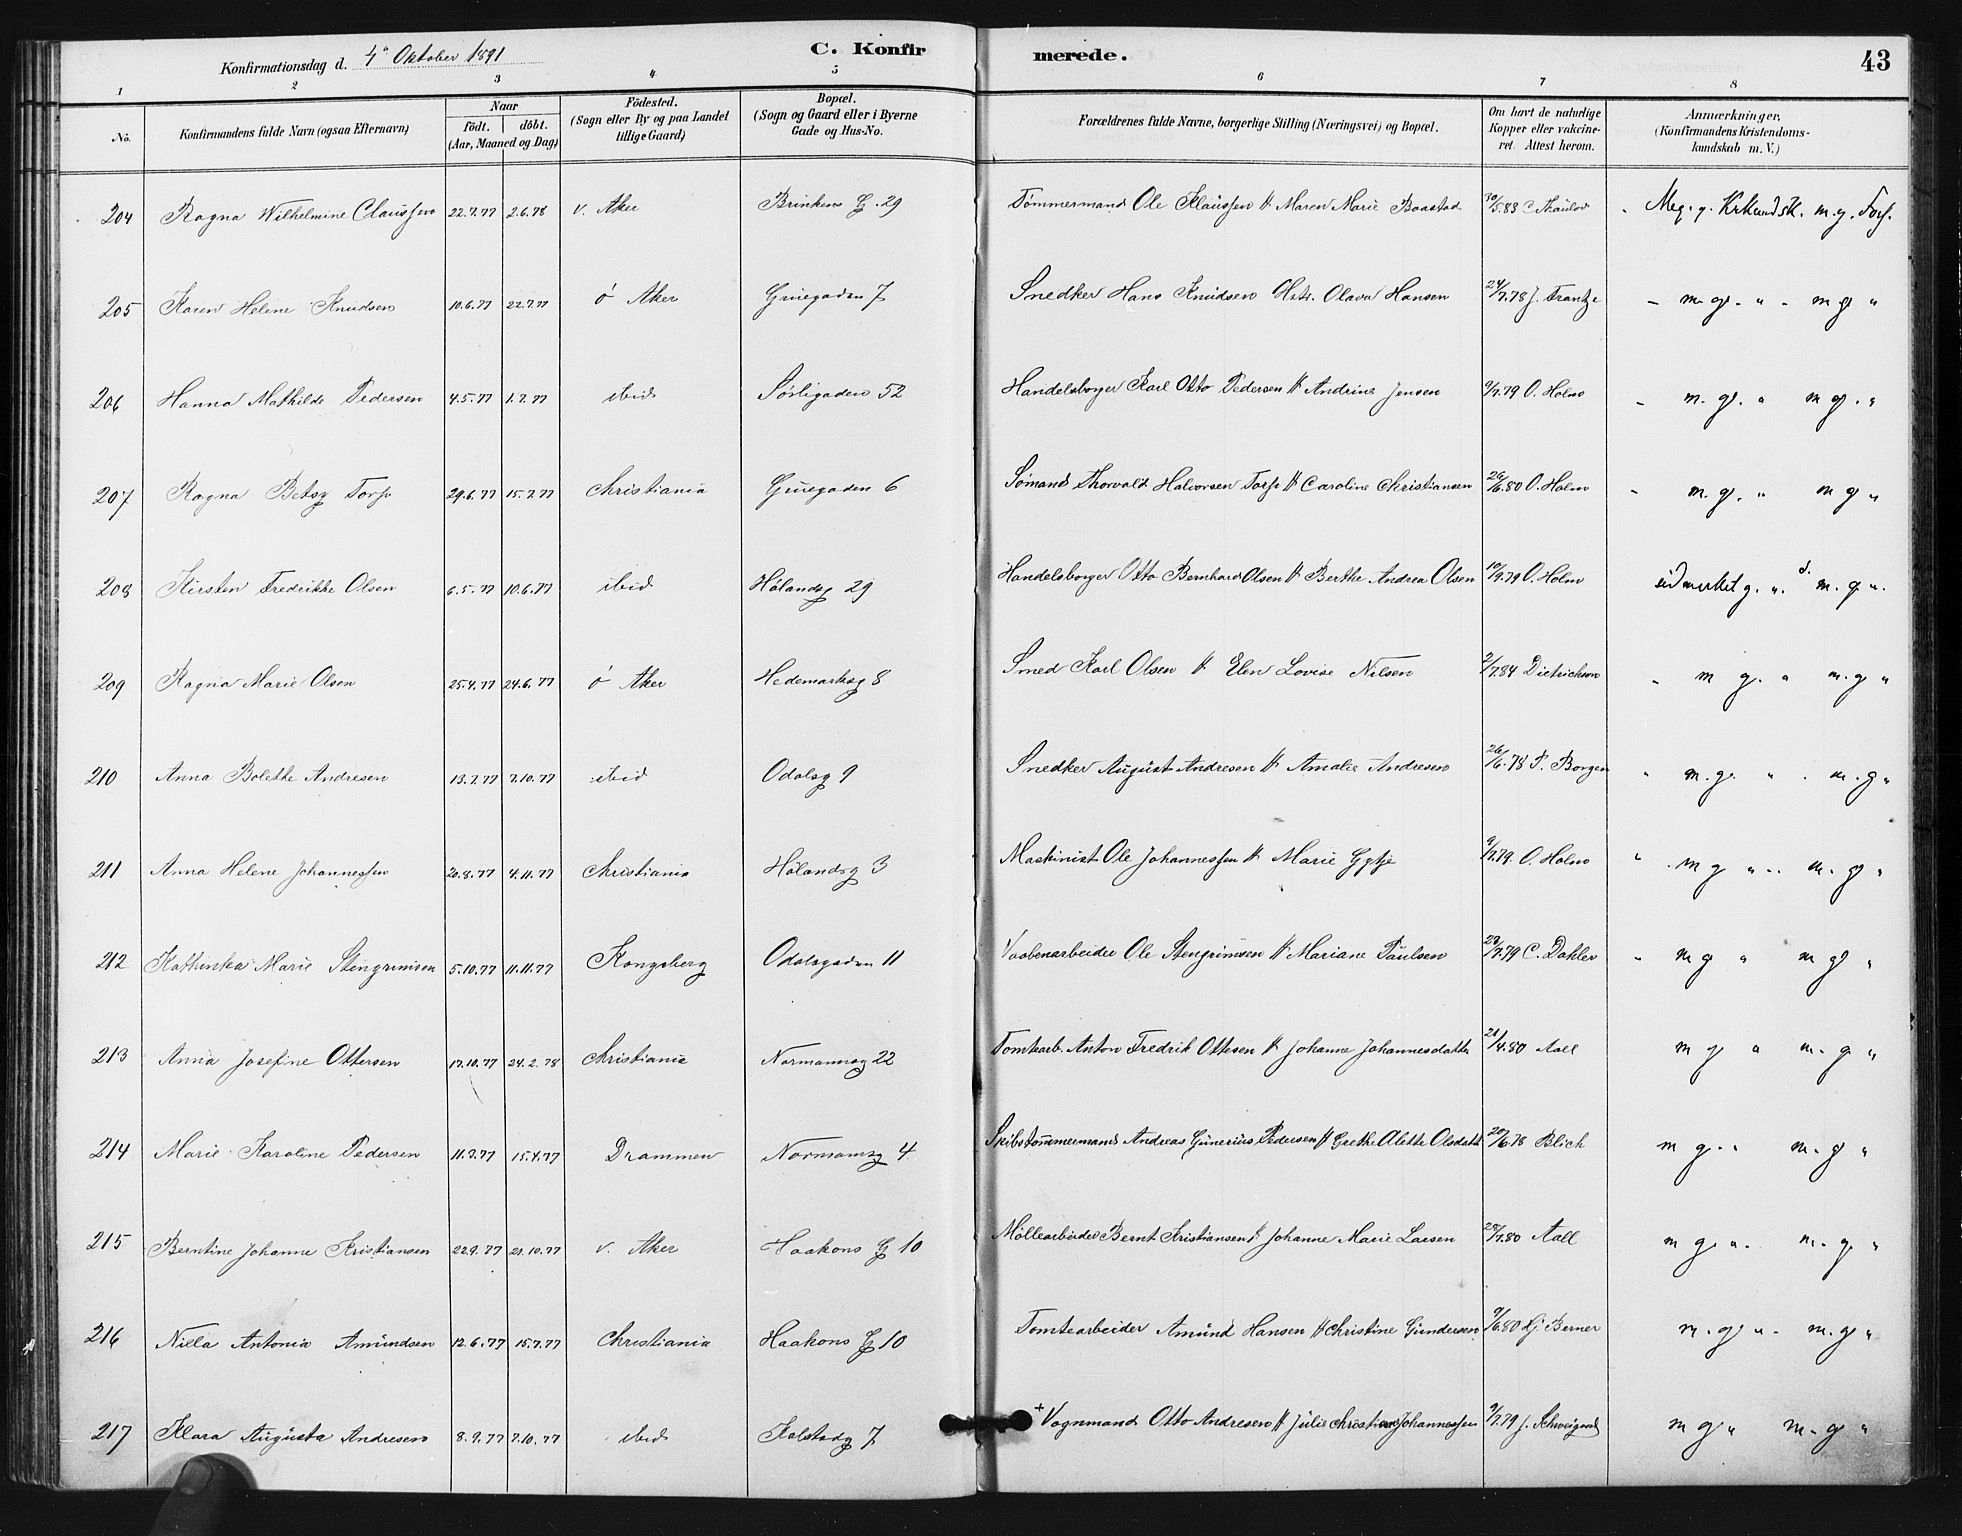 Konfirmationsdag d. 4de Oktober 1891
C. Konfirmerede.
43
1 2 3 4 5 6 7 8
No. | Konfirmandens fulde Navn (ogsaa Efternavn) | Naar födt. | döbt. (Aar, Maaned og Dag) | Födested. (Sogn eller By og paa Landet tillige Gaard) | Bopæl. (Sogn og Gaard eller i Byerne Gade og Hus-No. | Forældrenes fulde Navne, borgerlige Stilling (Næringsvei) og Bopæl. | Om havt de naturlige Kopper eller vakcineret. Attest herom. | Anmærkninger, (Konfirmandens Kristendomskundskab m. V.)
204 Ragna Wilhelmine Claussen 22.7.77 2.6.78 v. Aker Brinkens G. 29 Tømmermand Ole Klaussen & Maren Marie Baastad 30/5.83 C Thaulow Meg. g. Krkundsk. m.g. Forh.
205 Karen Helene Knudsen 10.6.77 22.7.77 ö Aker Gruegaden 7 Snedker Hans Knudsen Hstr. Olava Hansen 24/7.78 J. Frantze m. g. " m g "
206 Hanna Mathilde Pedersen 4.5.77 1.7.77 ibid Sørligaden 52 Handelsborger Karl Otto Pedersen & Andrine Jensen 9/7.79 O. Holm m. g. " m g. "
207 Ragna Betsy Torp 29.6.77 15.7.77 Christiania Gruegaden 6 Sømand Thorvald Halvorsen Torp & Caroline Christiansen 26/6.80 O. Holm m. g. " m g "
208 Kirsten Fredrikke Olsen 6.5.77 10.6.77 ibid Hölandsg 29 Handelsborger Otto Bernhard Olsen & Berthe Andrea Olsen 10/9.79 O. Holm udmerket g. ". m. g. ".
209 Ragna Marie Olsen 25.4.77 24.6.77 ö Aker Hedemarksg 8 Smed Karl Olsen & Elen Lovise Nilsen 2/7.84 Dietrichson m g. " m. g "
210 Anna Bolethe Andresen 13.7.77 7.10.77 ibid Odalsg 9 Snedker August Andresen & Amalie Andresen 26/6.78 P. Borgen m. g. " m. g "
211 Anna Helene Johannessen 20.8.77 4.11.77 Christiania Hölandsg 3 Maskinist Ole Johannessen & Marie Gytje 9/7.79 O. Holm m g " m. g "
212 Kathinka Marie Stengrimsen 5.10.77 11.11.77 Kongsberg Odalsgaden 11 Vaabenarbeider Ole Stengrimsen & Mariane Paulsen 23/7.79 C. Dahler m g " m g "
213 Anna Josefine Ottersen 17.10.77 24.2.78 Christiania Normannsg 22 Tomtearb. Anton Fredrik Ottesen & Johanne Johannesdatter 21/4.80 Aall m g " m. g. "
214 Marie Karoline Pedersen 11.3.77 15.4.77 Drammen Normansg 4 Skibstømmermand Andreas Gunerius Pedersen & Grethe Alette Olsdatt 20/6.78 Blich m g. " m. g "
215 Berntine Johanne Kristiansen 22.9.77 21.10.77 v. Aker Haakons G 10 Møllearbeider Bernt Kristiansen & Johanne Marie Larsen 20/7.80 Aall m g. ". m. g. "
216 Nilla Antonia Amundsen 12.6.77 15.7.77 Christiania Haakons G 10 Tomtearbeider Amund Hansen & Christine Gundersen 9/6.80 Hj. Berner m. g. " m. g. "
217 Klara Augusta Andresen 8.9.77 7.10.77 ibid Kalstadg 7 + Vognmand Otto Andresen & Julie Christine Johannessen 9/7.79 J. Schweigaard m g " m. g "